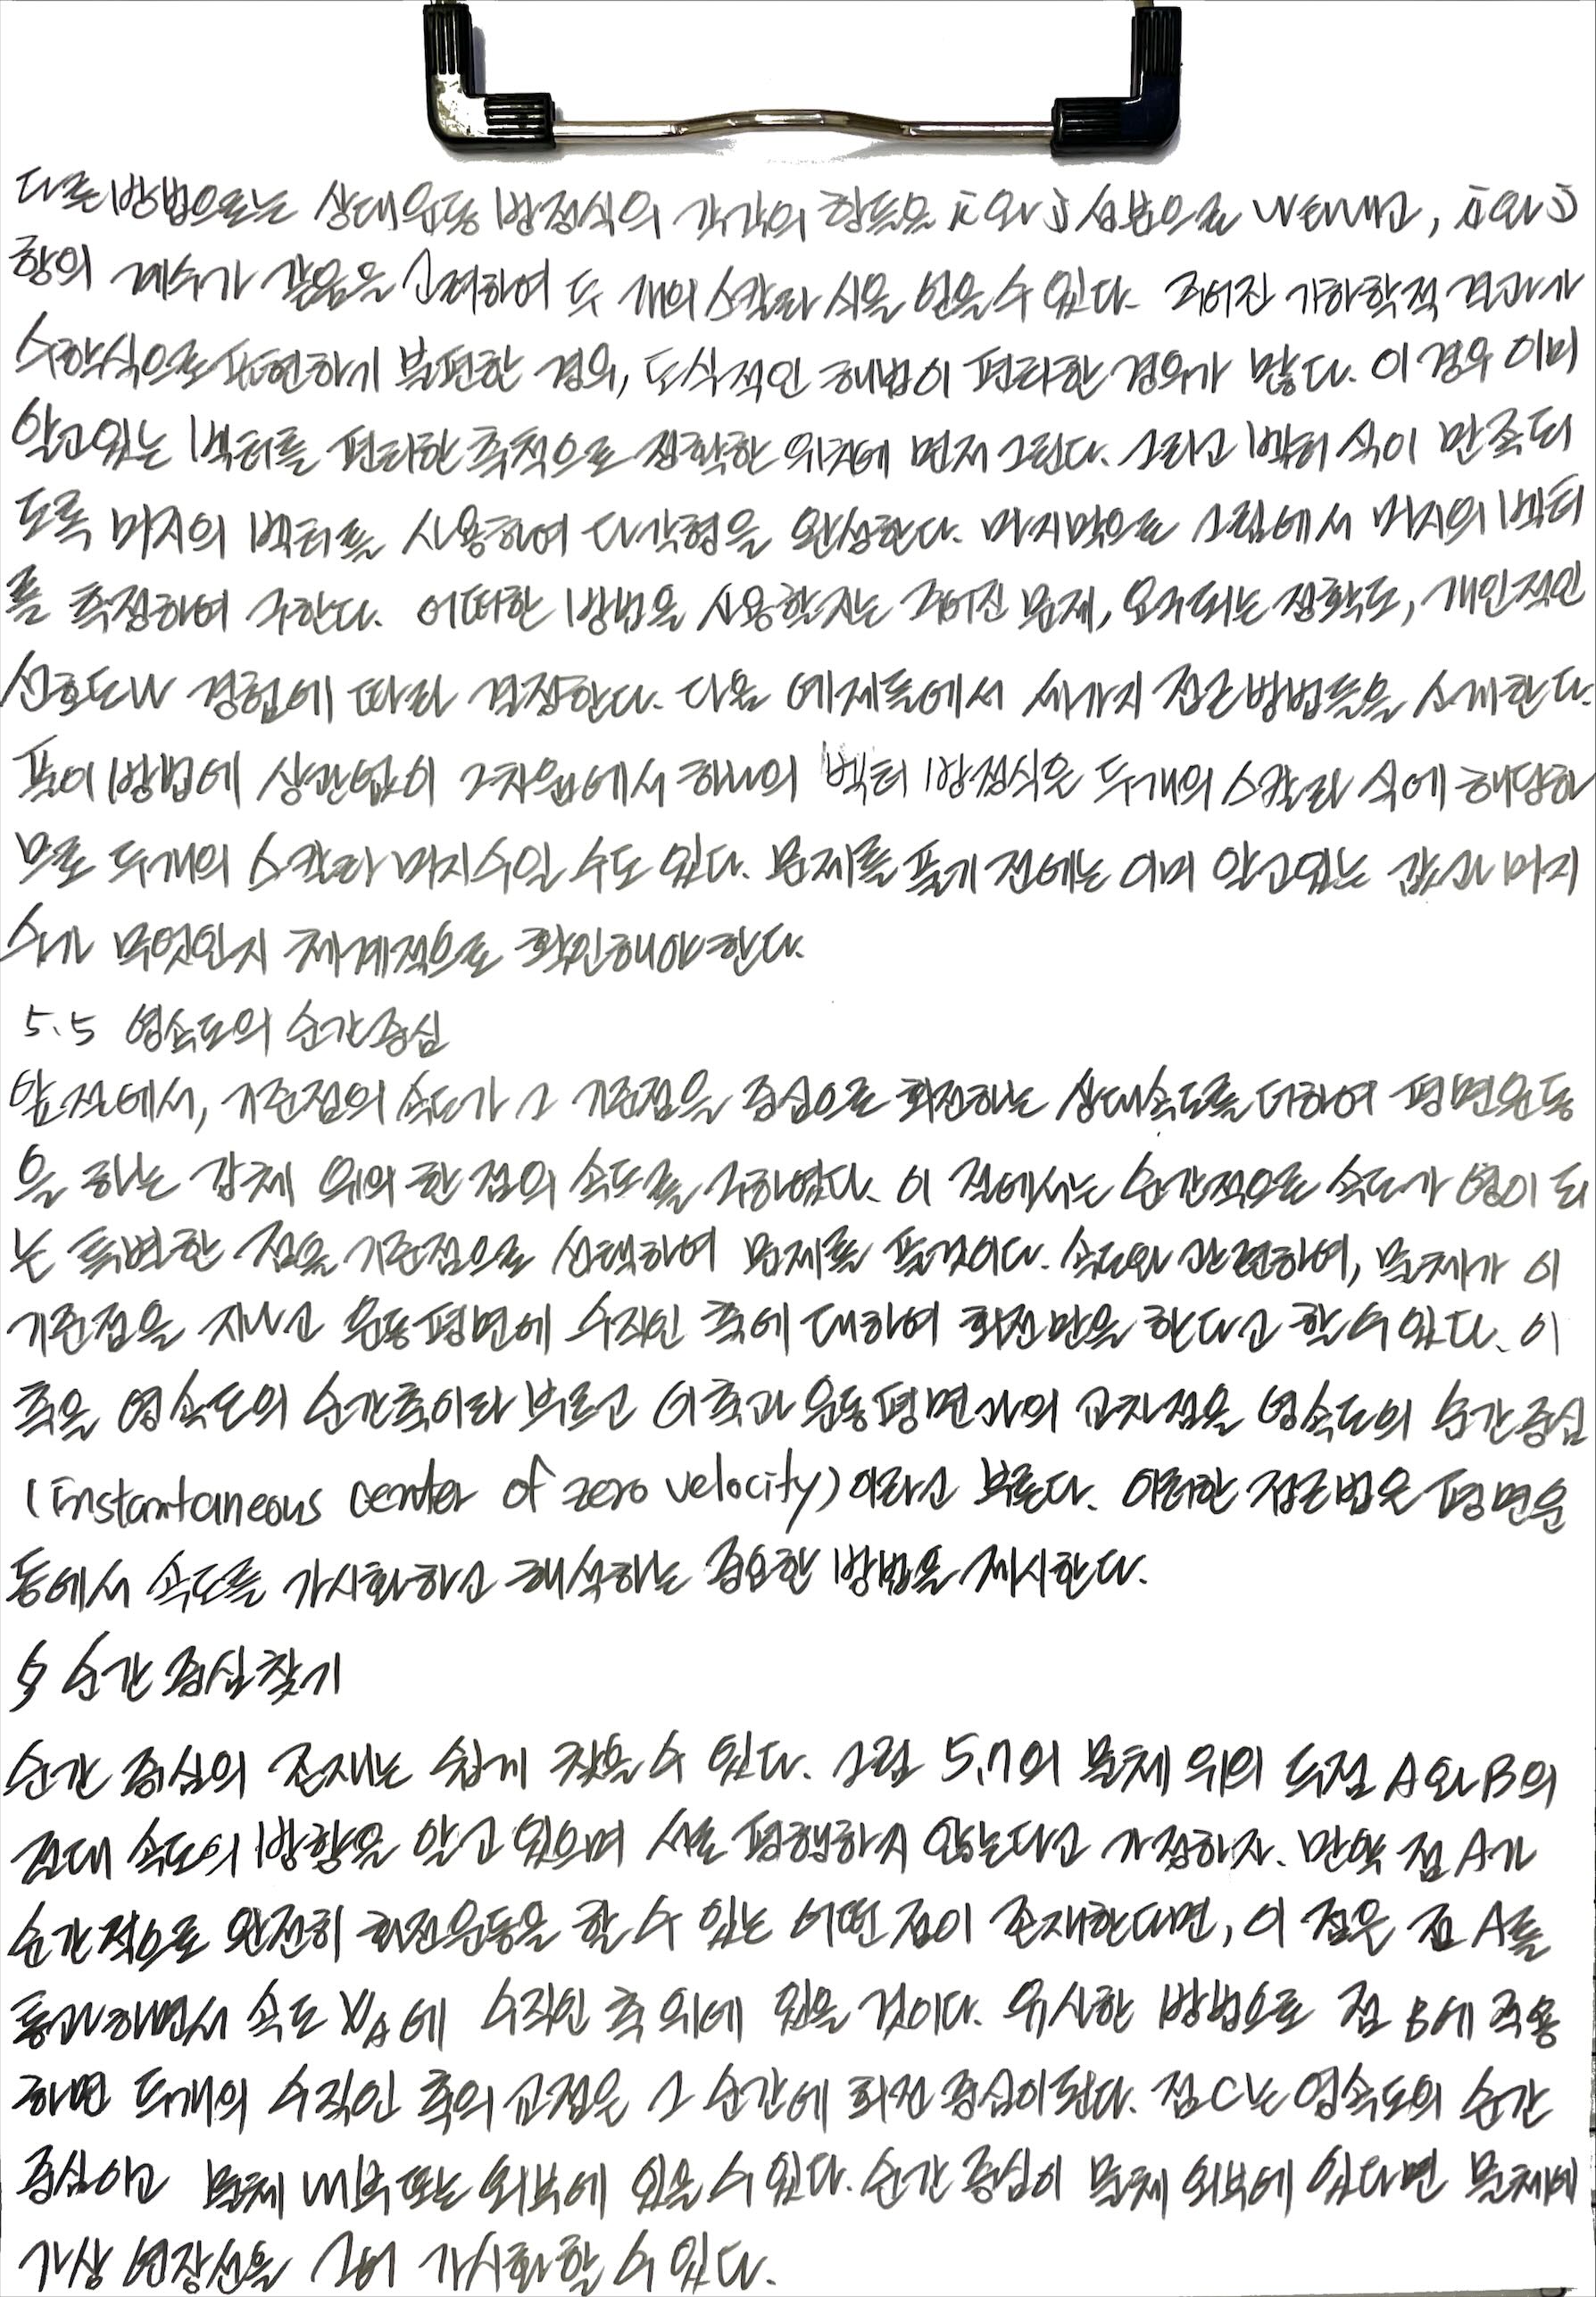 다른 방법으로는 상대운동 방정식의 각각의 항들을 i와 j 성분으로 나타내고, i와 j
항의 계수가 같음을 고려하여 두 개의 스칼라 식을 얻을 수 있다. 주어진 기하학적 결과가
수학식으로 표현하기 불편한 경우, 도식적인 해법이 편리한 경우가 많다. 이 경우 이미
알고있는 벡터를 편리한 축척으로 정확한 위치에 먼저 그린다. 그리고 벡터 식이 만족되
도록 미지의 벡터를 사용하여 다각형을 완성한다. 마지막으로 그림에서 미지의 벡터
를 측정하여 구한다. 어떠한 방법을 사용할지는 주어진 문제, 요구되는 정확도, 개인적인
선호도나 경험에 따라 결정한다. 다음 예제들에서 세가지 접근방법들을 소개한다.
풀이 방법에 상관없이 2차원에서 하나의 벡터 방정식은 두개의 스칼라 식에 해당하
므로 두개의 스칼라 미지수일 수도 있다. 문제를 풀기 전에는 이미 알고있는 값과 미지
수가 무엇인지 체계적으로 확인해야한다.
5.5 영속도의 순간중심
앞 절에서, 기준점의 속도가 그 기준점을 중심으로 회전하는 상대속도를 더하여 평면운동
을 하는 강체 위의 한 점의 속도를 구하였다. 이 절에서는 순간적으로 속도가 영이 되
는 특별한 점을 기준점으로 선택하여 문제를 풀것이다. 속도와 관련하여, 물체가 이
기준점을 지나고 운동평면에 수직인 축에 대하여 회전만을 한다고 할 수 있다. 이
축을 영속도의 순간축이라 부르고 이 축과 운동평면과의 교차점을 영속도의 순간중심
(instantaneous center of zero velocity)이라고 부른다. 이러한 접근법은 평면운
동에서 속도를 가시화하고 해석하는 중요한 방법을 제시한다.
§ 순간 중심 찾기
순간 중심의 존재는 쉽게 찾을 수 있다. 그림 5.7의 물체 위의 두점 A와 B의
절대 속도의 방향을 알고 있으며 서로 평행하지 않는다고 가정하자. 만약 점 A가
순간적으로 완전히 회전운동을 할 수 있는 어떤 점이 존재한다면, 이 점은 점 A를
통과하면서 속도 v_A에 수직인 축 위에 있을 것이다. 유사한 방법으로 점 B에 적용
하면 두개의 수직인 축의 교점은 그 순간에 회전 중심이된다. 점 C는 영속도의 순간
중심이고 물체 내부 또는 외부에 있을 수 있다. 순간 중심이 물체 외부에 있다면 물체에
가상 연장선을 그어 가시화할 수 있다.